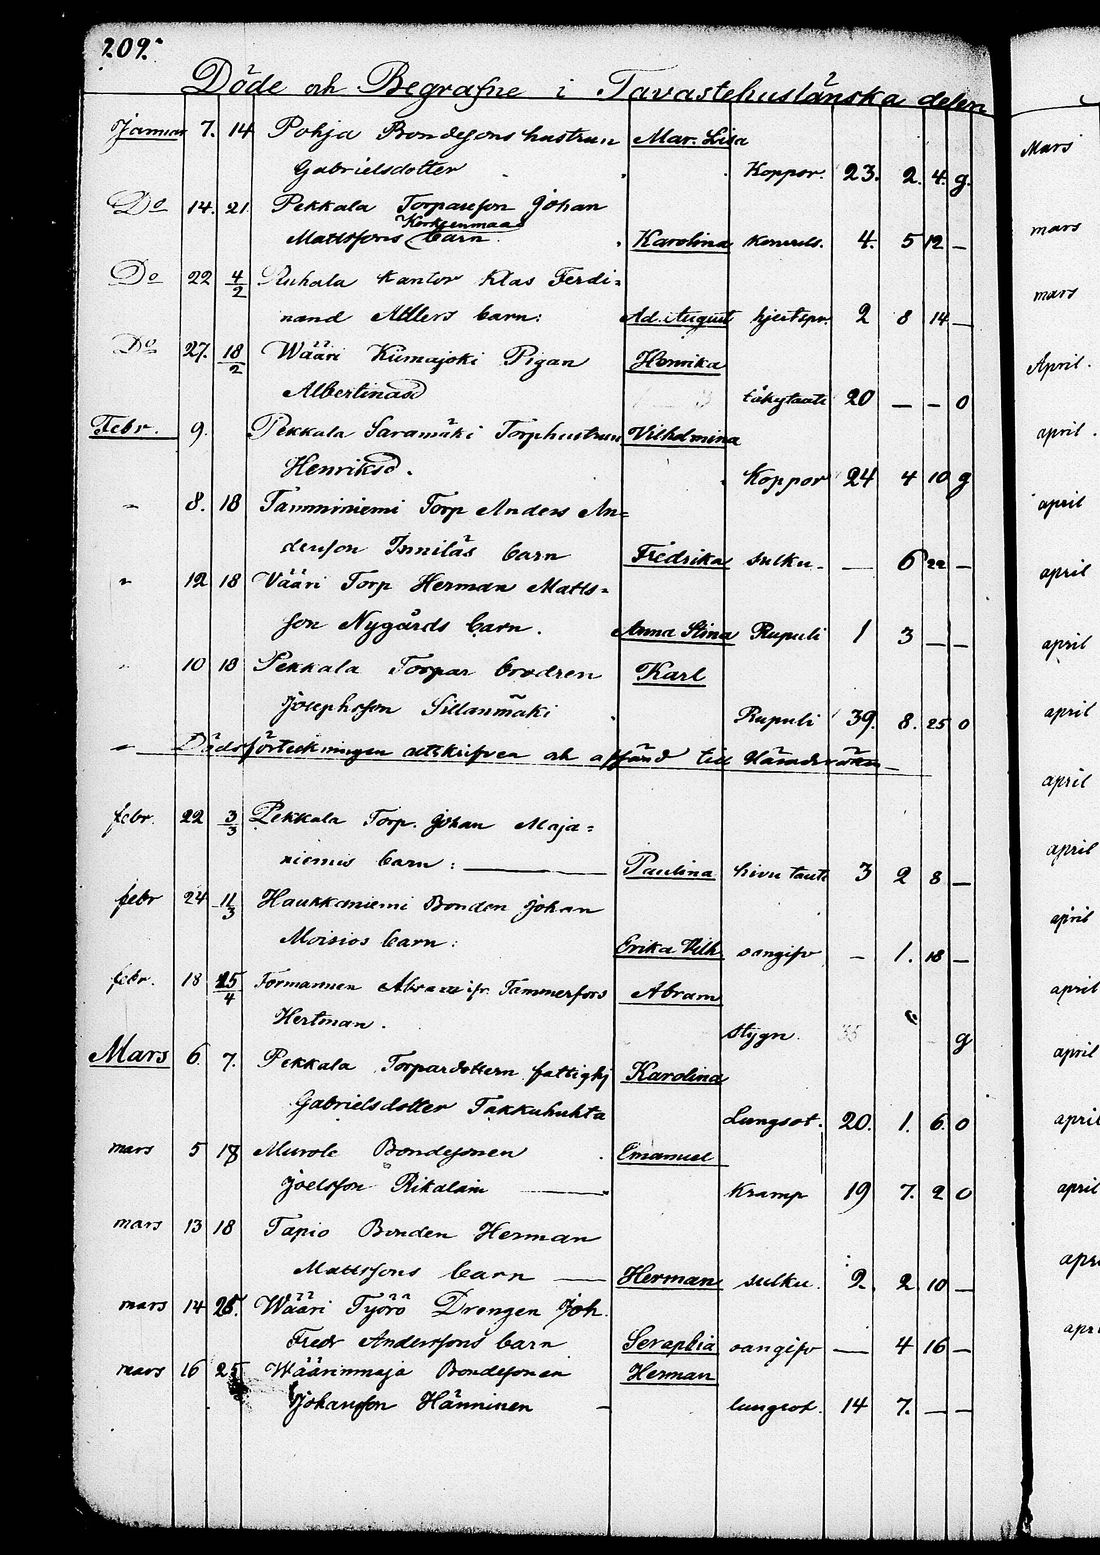 209.
Döde och Begrafne i Tavastehuslänska delen
Januar 7. 14 Pohja Bondesons hustrun Mar. Lisa
Gabrielsdotter Koppor. 23. 2. 4. g.
Do 14. 21 Pekkala Torpareson Johan
Mattssons barn. Karolina 4. 5 12 —
Do 22 4/2 Ruhala Kantor Klas Ferdi=
nand Ahllers barn: Ad. August hjertspr. 2 8 14 —
Do 27. 18/2 Wääri Kiimajoki Pigan Henrika
Albertinasd 20 — — o
Febr. 9. Pekkala Saramäki Torphustrun Vilhelmina
Henriksd. Koppor 24 4 10 g
" 8. 18 Tamminiemi Torp Anders An=
derson Inniläs barn Fredrika sulku. — 6 22 —
" 12 18 Vääri Torp Herman Matts=
son Nygårds barn. Anna Stina Rupuli 1 3 — —
" 10 18 Pekkala Torpar brodren Karl
Josephsson Sillanmäki Rupuli 39. 8. 25 o
" Dödsförteckningen utskrifven och affärd till Häradsrätten
febr. 22 3/3 Pekkala Torp. Johan Maja=
niemis barn: Paulina hivu tauti 3 2 8 —
febr 24 11/3 Haukkaniemi Bonden Johan
Moisios barn: Erika Vilh. oangifv — 1. 18 —
febr. 18 25/4 Formannen Abram ifr. Tammerfors Abram
Hertman. Stygn. 35 g
Mars 6. 7. Pekkala Torpardottern fattighj Karolina
Gabrielsdotter Takkuhuhta Lungsot. 20. 1. 6. o
mars 5 18 Murole Bondesonen Emanuel
Joelsson Rikalain — Kramp 19 7. 2 o
mars 13 18 Tapio Bonden Herman
Mattssons barn — Herman sulku. 2. 2. 10 —
mars 14 25. Wääri Työrö Drengen Joh.
Fredr Anderssons barn Seraphia oangifv — 4 16 —
mars 16 25 Wäärinmaja Bondesonen Herman
Johansson Hänninen — lungsot. 14 7. — —
Mars
mars
mars
April.
april.
april
april
april
april
april
april
april
april
april
april
april